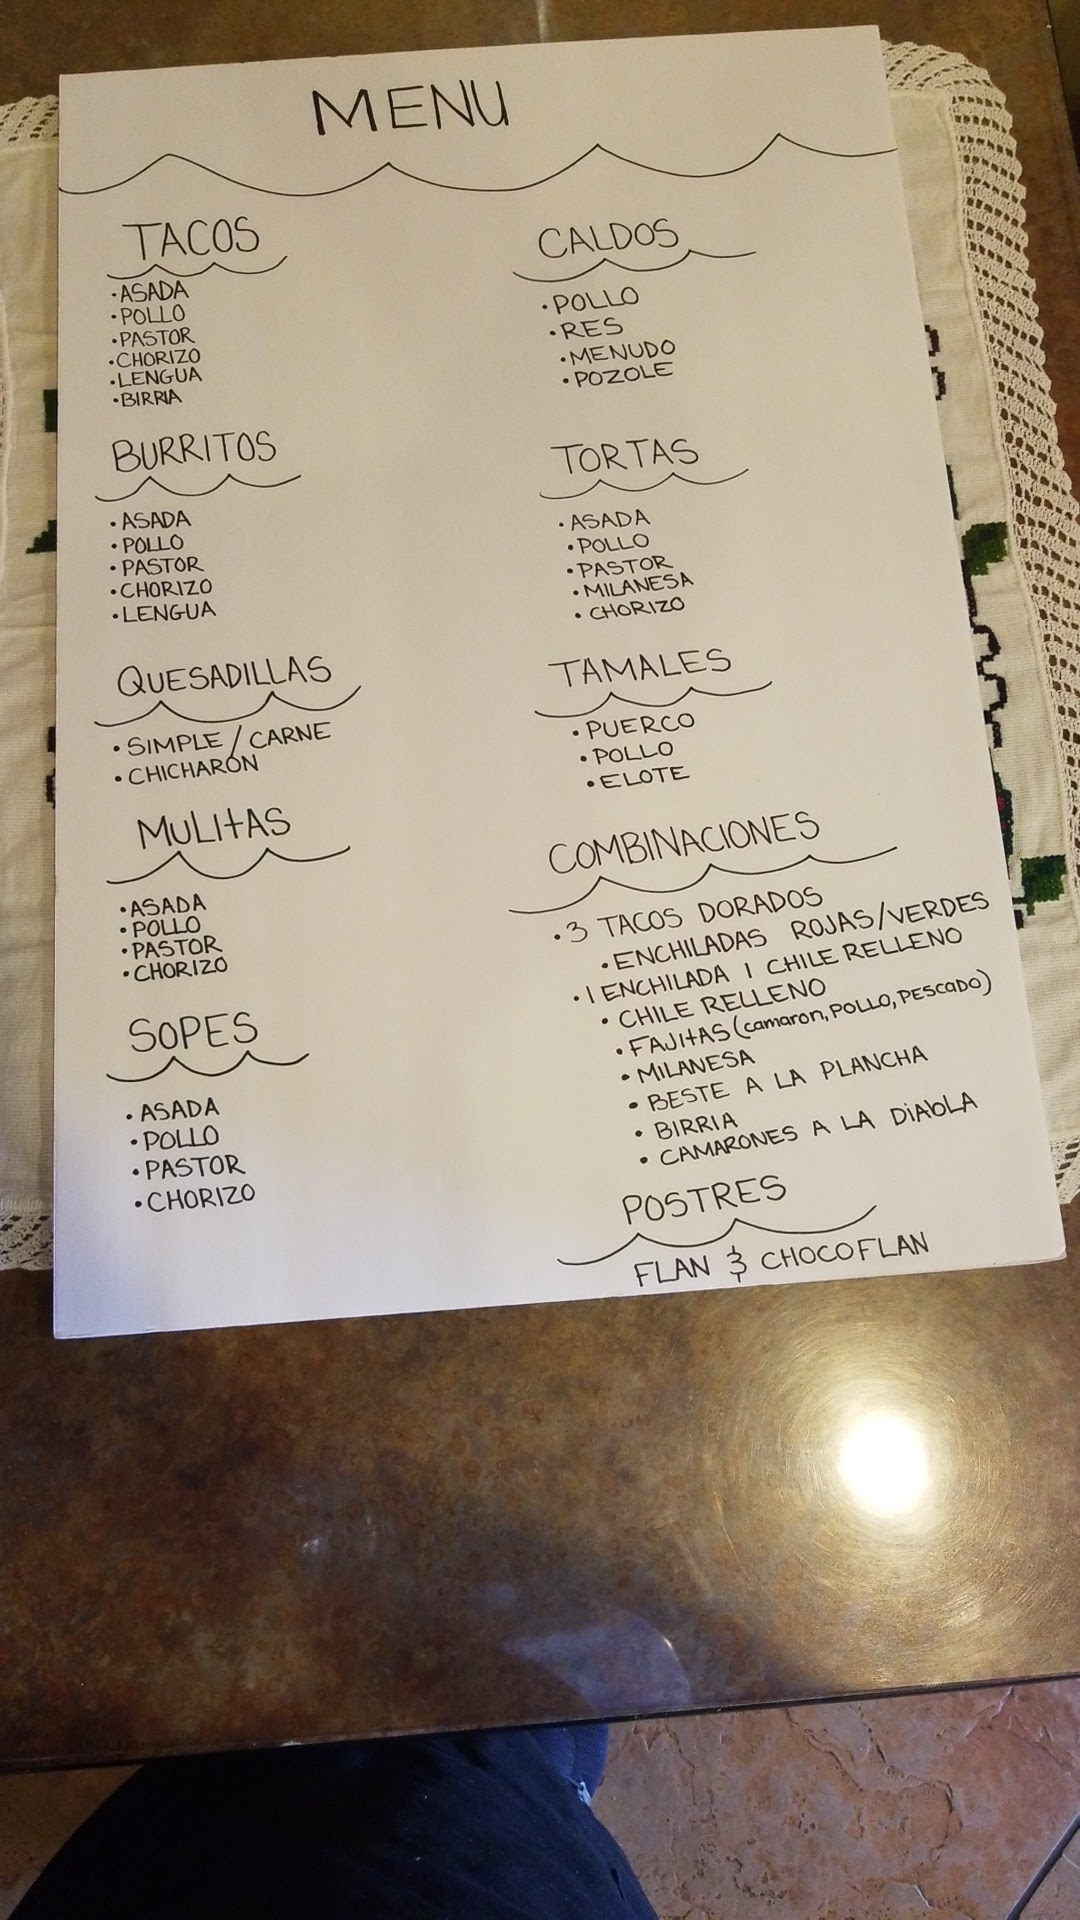 MENU
TACOS
• ASADA
• POLLO
• PASTOR
• CHORIZO
• LENGUA
• BIRRIA
BURRITOS
• ASADA
• POLLO
• PASTOR
• CHORIZO
• LENGUA
QUESADILLAS
• SIMPLE / CARNE
• CHICHARON
MULITAS
• ASADA
• POLLO
• PASTOR
• CHORIZO
SOPES
• ASADA
• POLLO
• PASTOR
• CHORIZO
CALDOS
• POLLO
• RES
• MENUDO
• POZOLE
TORTAS
• ASADA
• POLLO
• PASTOR
• MILANESA
• CHORIZO
TAMALES
• PUERCO
• POLLO
• ELOTE
COMBINACIONES
• 3 TACOS DORADOS
• ENCHILADAS ROJAS/VERDES
• 1 ENCHILADA 1 CHILE RELLENO
• CHILE RELLENO
• FAJITAS (camaron, POLLO, PESCADO)
• MILANESA
• BESTE A LA PLANCHA
• BIRRIA
• CAMARONES A LA DiAbLA
POSTRES
FLAN & CHOCOFLAN